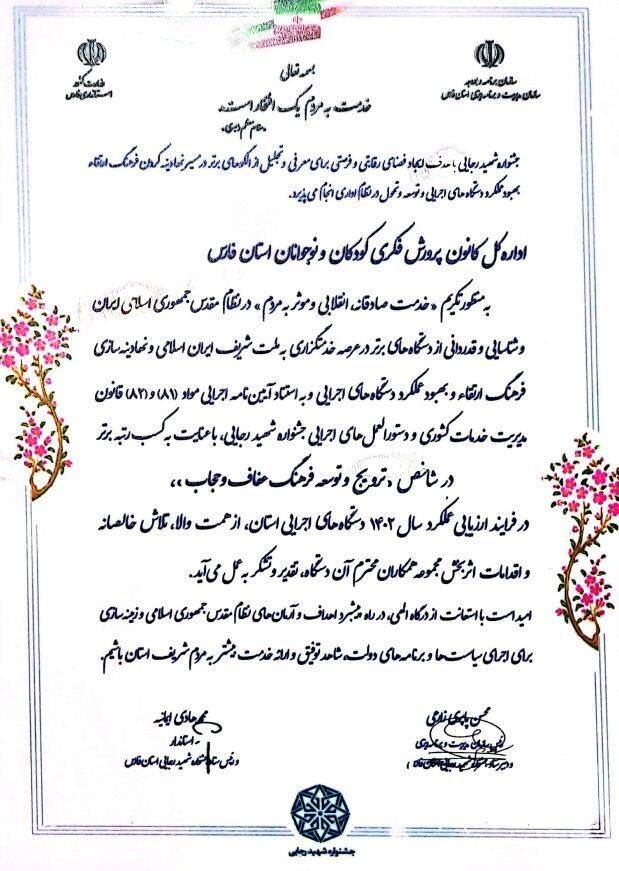 بسمه تعالی
وزارت کشور
استانداری فارس
سازمان برنامه و بودجه
سازمان مدیریت و برنامه‌ریزی استان فارس
خدمت به مردم یک افتخار است.
مقام معظم رهبری
جشنواره شهید رجایی با هدف ایجاد فضای رقابتی و فرصتی برای معرفی و تجلیل از الگوهای برتر در مسیر نهادینه کردن فرهنگ ارتقاء
بهبود عملکرد دستگاه های اجرایی و توسعه و تحول در نظام اداری انجام می پذیرد.
اداره کل کانون پرورش فکری کودکان و نوجوانان استان فارس
به منظور تکریم «خدمت صادقانه، انقلابی و موثر به مردم» در نظام مقدس جمهوری اسلامی ایران
و شناسایی و قدردانی از دستگاه های برتر در عرصه خدمتگزاری به ملت شریف ایران اسلامی و نهادینه سازی
فرهنگ ارتقاء و بهبود عملکرد دستگاه های اجرایی و به استناد آیین نامه اجرایی مواد (۸۱) و (۸۲) قانون
مدیریت خدمات کشوری و دستورالعمل های اجرایی جشنواره شهید رجایی، با عنایت به کسب رتبه برتر
در شاخص «ترویج و توسعه فرهنگ عفاف و حجاب»
در فرایند ارزیابی عملکرد سال ۱۴۰۲ دستگاه های اجرایی استان، از همت والا، تلاش خالصانه
و اقدامات اثربخش مجموعه همکاران محترم آن دستگاه، تقدیر و تشکر به عمل می آید.
امید است با استعانت از درگاه الهی، در راه پیشبرد اهداف و آرمان های نظام مقدس جمهوری اسلامی و زمینه سازی
برای اجرای سیاست ها و برنامه های دولت، شاهد توفیق و ارائه خدمت بیشتر به مردم شریف استان باشیم.
محسن زارعی
رئیس سازمان مدیریت و برنامه‌ریزی
و دبیر ستاد جشنواره شهید رجایی استان فارس
محمدهادی ایمانیه
استاندار
و رئیس ستاد جشنواره شهید رجایی استان فارس
جشنواره شهید رجایی